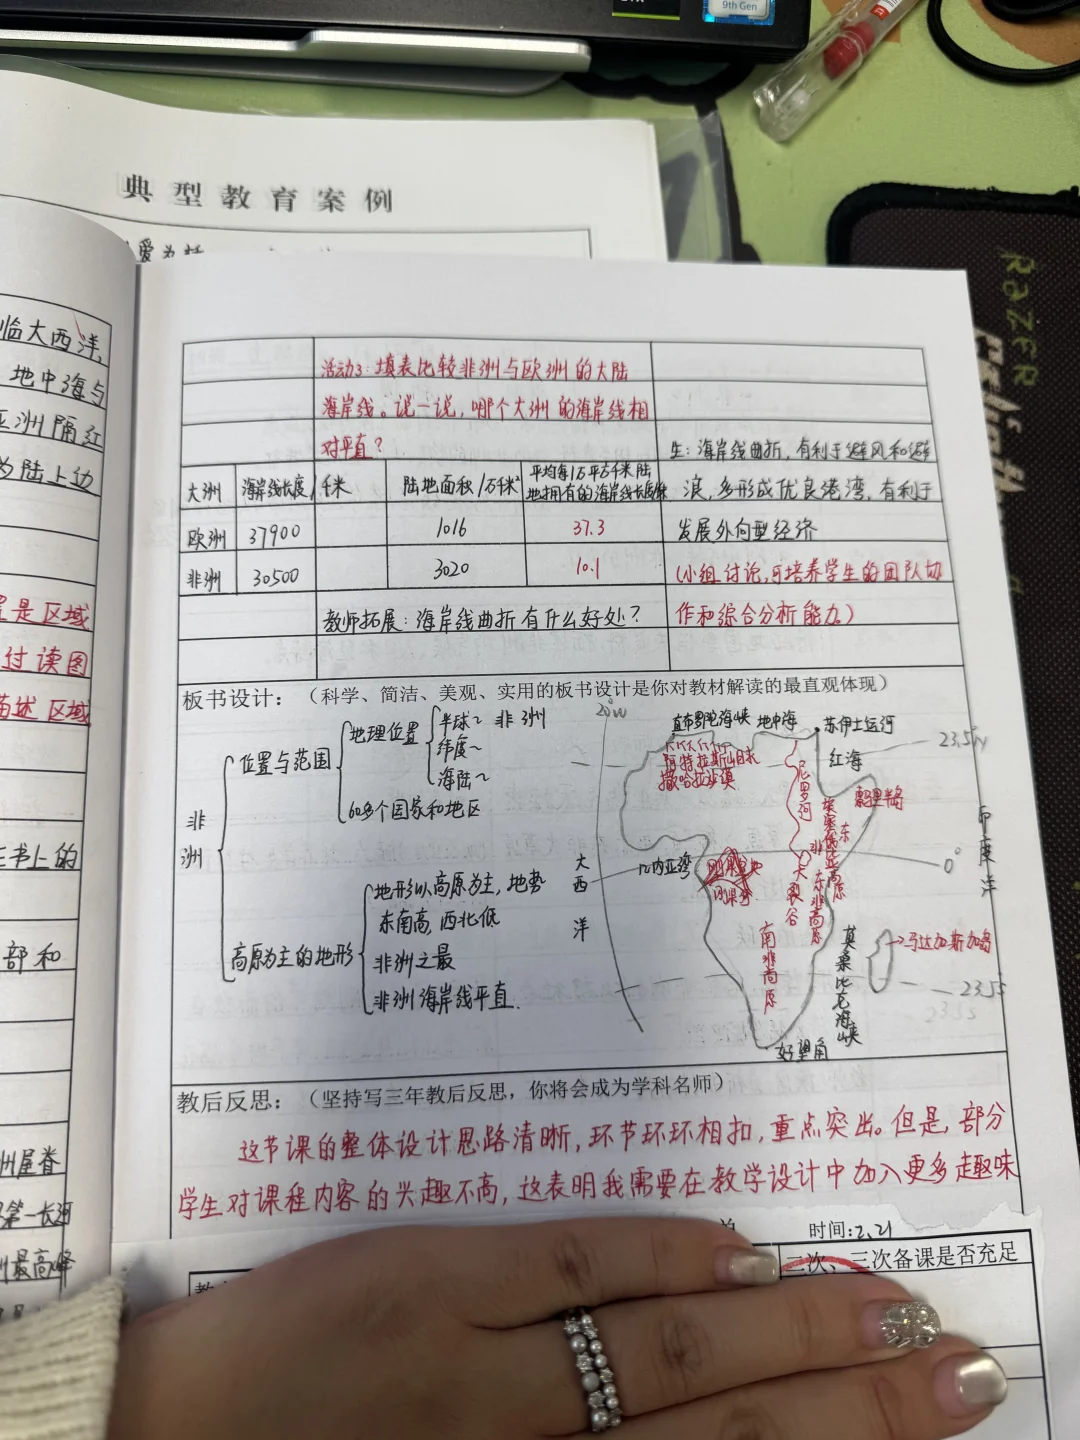 9th Gen
RAZER
典型教育案例
临大西洋,
地中海与
亚洲隔红
为陆上边
是区域
过读图
描述区域
书上的
部和
州屋脊
第一长河
州最高峰
活动3:填表比较非洲与欧洲的大陆
海岸线。说一说,哪个大洲的海岸线相
对平直?
生:海岸线曲折,有利于避风和避
浪,多形成优良港湾,有利于
发展外向型经济
(小组讨论,可培养学生的团队协
作和综合分析能力。)
大洲 海岸线长度/千米 陆地面积/万千米² 平均每1万平方千米陆地拥有的海岸线长度/千米
欧洲 37900 1016 37.3
非洲 30500 3020 10.1
教师拓展:海岸线曲折有什么好处?
板书设计:(科学、简洁、美观、实用的板书设计是你对教材解读的最直观体现)
非洲
位置与范围
地理位置
半球~ 非洲
纬度~
海陆~
60多个国家和地区
高原为主的地形
地形以高原为主,地势
东南高,西北低
非洲之最
非洲海岸线平直
20°W
直布罗陀海峡 地中海 苏伊士运河
23.5°N
红海
阿特拉斯山脉
撒哈拉沙漠
尼罗河
埃塞俄比亚高原
印度洋
0°
几内亚湾
大西洋
刚果盆地
刚果河
东非大裂谷
东非高原
南非高原
马达加斯加岛
莫桑比克海峡
23.5S
23.5S
好望角
教后反思:(坚持写三年教后反思,你将会成为学科名师)
这节课的整体设计思路清晰,环节环环相扣,重点突出。但是,部分
学生对课程内容的兴趣不高,这表明我需要在教学设计中加入更多趣味
时间:2.21
二次、三次备课是否充足